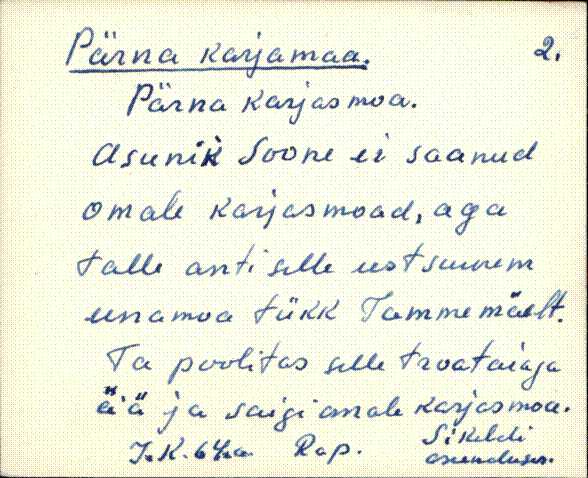 Pärna karjamaa. 2.
Pärna karjasmoa.
Asunik Soone ei saanud
omale karjasmoad, aga
talle anti selle eest suurem
einamoa tükk Tammemäelt.
Ta poolitas selle troataiaga
ää ja saigi omale karjasmoa.
J.K. 64.a. Rap. Sikeldi
asundusen.